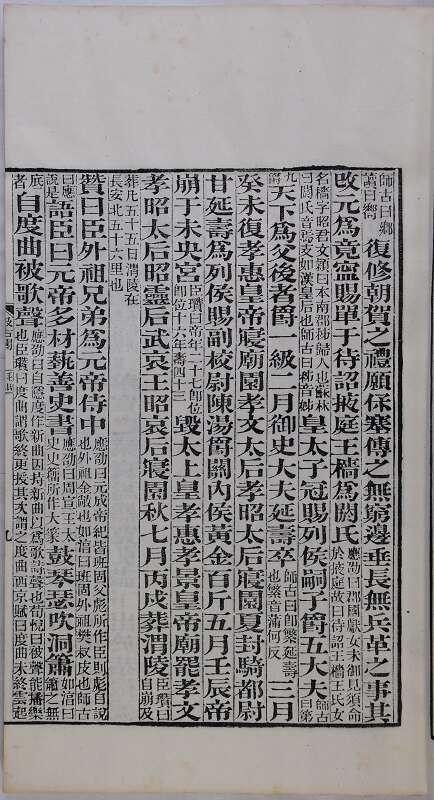 師古曰鄉讀曰嚮復修朝賀之禮願保塞傳之無窮邊垂長無兵革之事其
改元爲竟寧賜單于待詔掖庭王檣爲閼氏應劭曰郡國獻女未御見須命於掖庭故曰待詔王檣王氏女
名檣字昭君文穎曰本南郡秭歸人也蘇林曰閼氏音焉支如漢皇后也師古曰秭音姊皇太子冠賜列侯嗣子爵五大夫師古曰第
九爵天下爲父後者爵一級二月御史大夫延壽卒師古曰即繁延壽也繁音蒲何反三月
癸未復孝惠皇帝寢廟園孝文太后孝昭太后寢園夏封騎都尉
甘延壽爲列侯賜副校尉陳湯爵關內侯黃金百斤五月壬辰帝
崩于未央宮臣瓚曰帝年二十七即位即位十六年壽四十三毀太上皇孝惠孝景皇帝廟罷孝文
孝昭太后昭靈后武哀王昭哀后寢園秋七月丙戌葬渭陵臣瓚曰自崩及
葬凡五十五日渭陵在長安北五十六里也
贊曰臣外祖兄弟爲元帝侍中應劭曰元成帝紀皆班固父彪所作臣則彪自說也外祖金敞也如淳曰班固外祖樊叔皮也師古
曰應說是語臣曰元帝多材藝善史書應劭曰周宣王太史史籀所作大篆鼓琴瑟吹洞簫如淳曰簫之無
底者自度曲被歌聲應劭曰自隱度作新曲因持新曲以爲歌詩聲也荀悅曰被聲能播樂也臣瓚曰度曲謂歌終更授其次謂之度曲西京賦曰度曲未終雲起
九